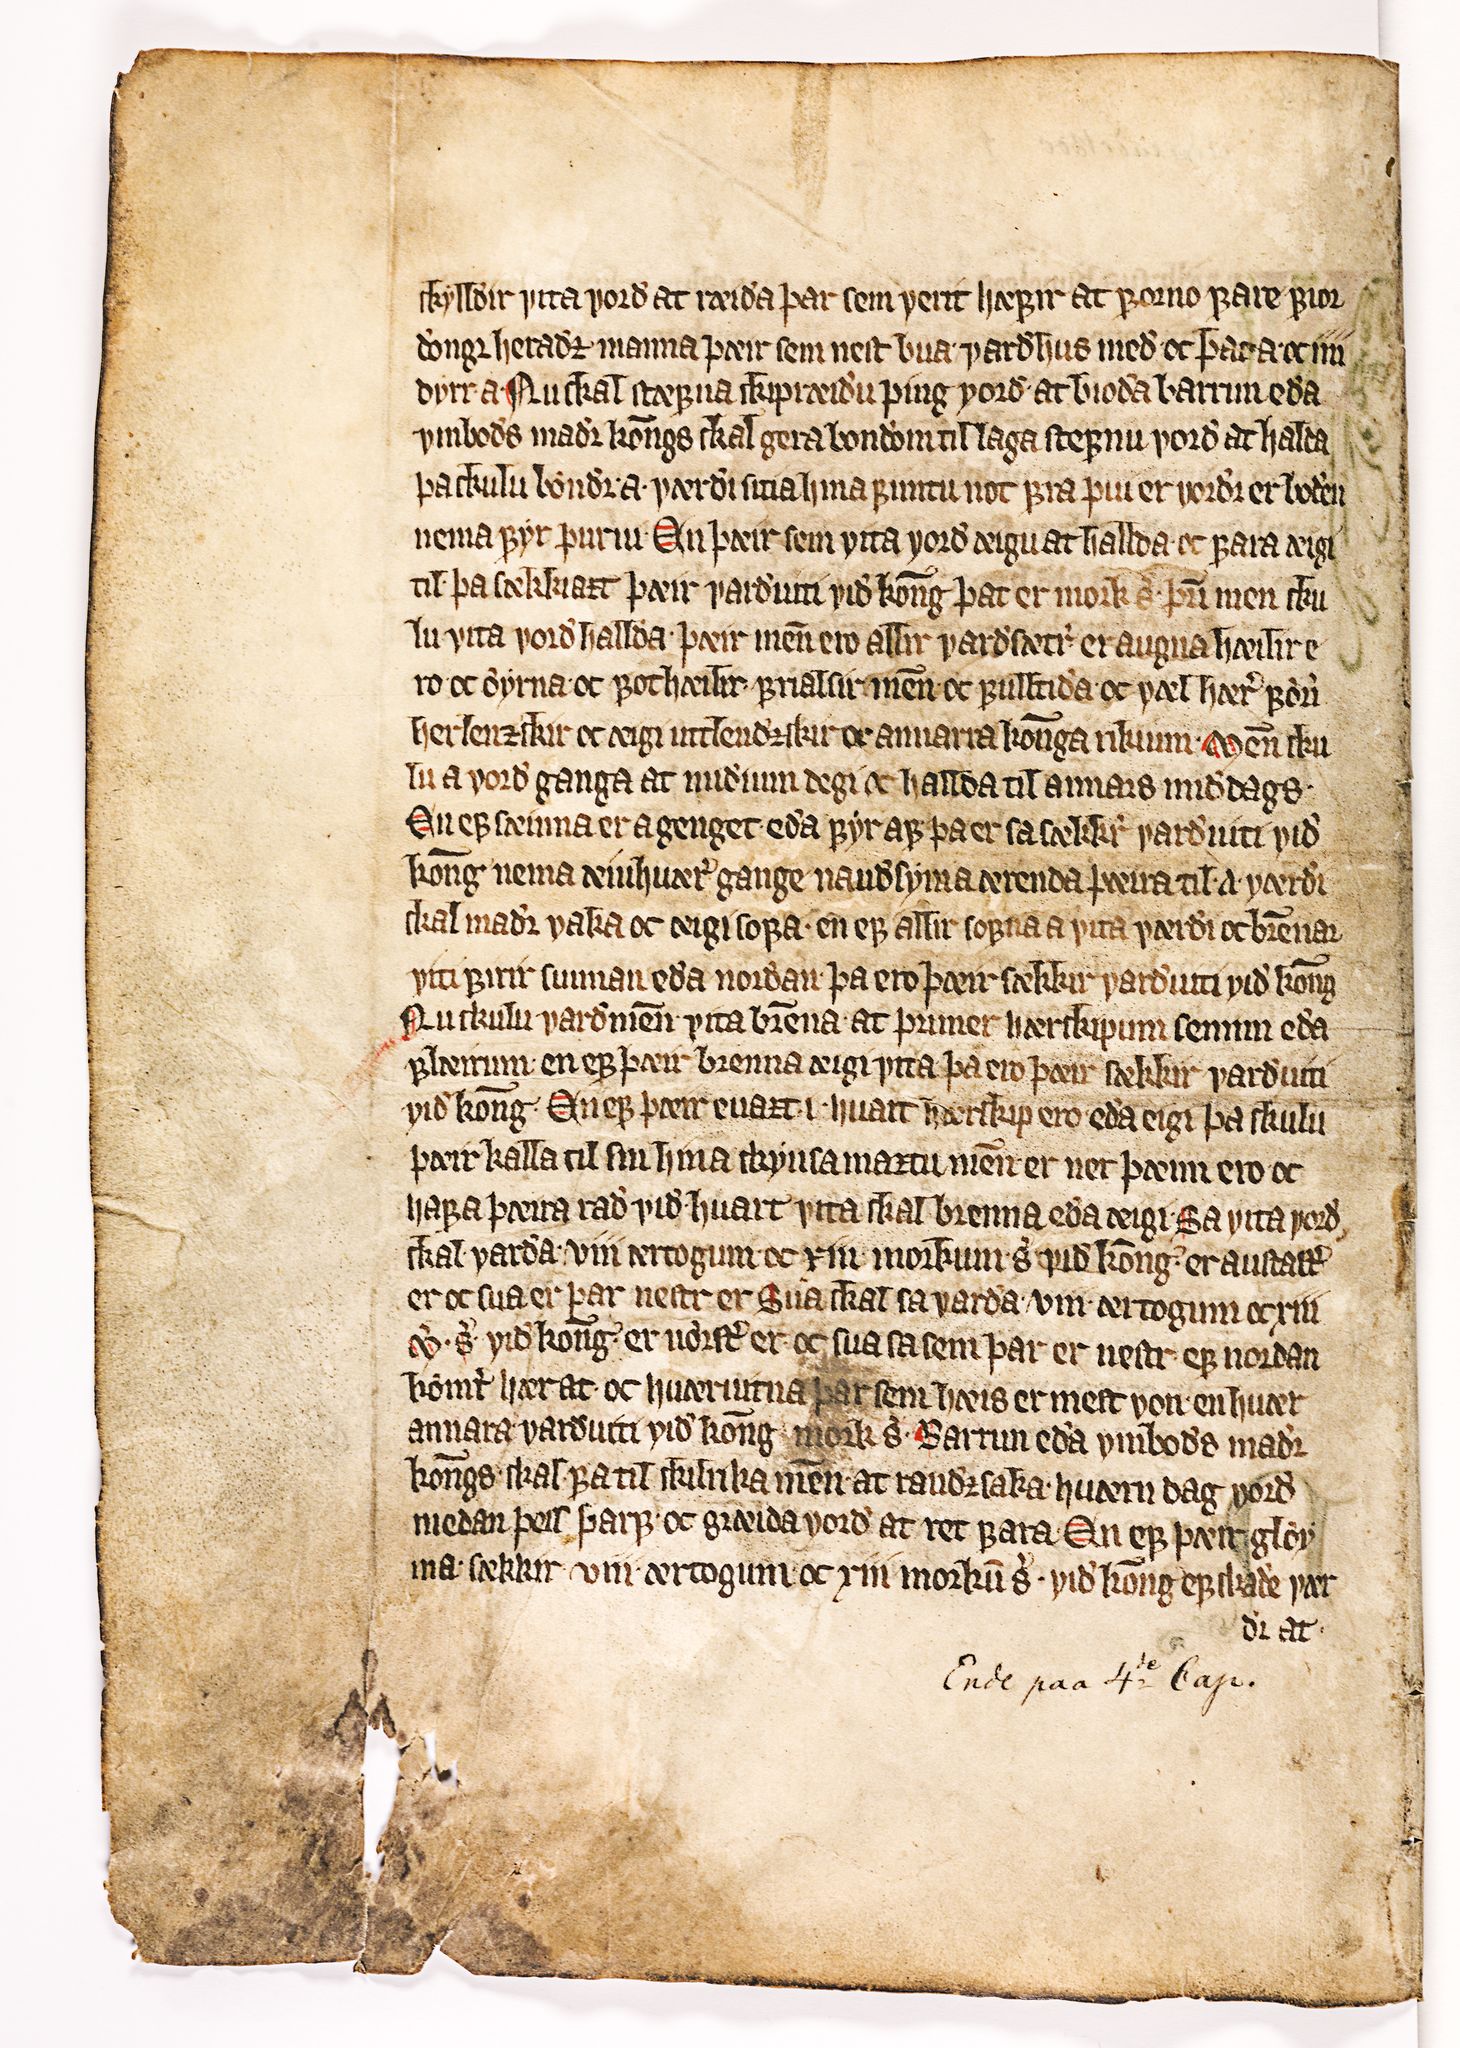 skylldir vita vord at ræida þar sem verit hæfuir at forno fare fior
dongr heradz manna þæir sem nest bua. vardhus med. oc þac a. oc iiii
dyrr a. Nu skal stæfna skipræidu þing vord. at bioda barrun eda
vmbods madr kongs skal gera bondom til laga stefnu vord at halda
þa skulu bondr. a. værdi sitia hina fimtu not fra þui er vordr er boden
nema fyr þurfui. En þæir sem vita vord æigu at hallda. oc fara æigi
til. þa sækkiazt þæir varduiti vid kong þat er mork s. þrir men sku
lu vita vord hallda. þæir men ero allir vardsætir er augna hæilir e
ro oc øyrna. oc fot hæilir. frialsir men. oc fulltida. oc væl hær forir
herlenzskir oc æigi uttlendzskir oc annarra konga rikium. Men sku
lu a vord ganga at midium degi oc hallda til annars middags.
En ef sæinna er a genget eda fyr af þa er sa sækkir varduiti vid
kong nema æinhuær gange naudsyina ærenda þæira til. A værdi
skal madr vaka oc æigi sofa. en ef allir sofna a vita værdi oc brennar
viti firir sunnan eda nordan þa ero þæir sækkir vard uiti vid kong
Nu skulu vardmen vita brena. at primer hærskipum semun eda
flæirum. en ef þæir brenna æigi vita þa ero þæir sækkir vard uiti
vid kong. En ef þæir euazt. i. huart hærskip ero eda eigi þa skulu
þæir kalla til sin hina skynsamaztu men er ner þæim ero oc
hafa þæira rad vid. huart vita skal brenna eda æigi. Sa vita vord
skal varda. viii ærtogum oc xiii morkum s vid kong. er austast
er oc sua er þar nestr er Sua skal sa varda. viii. ærtogum oc xiii
m. s. vid kong. er norst er. oc sua sa sem þar er nestr. ef nordan
komr hær at. oc huæruitna þar sem hæis er mest von. en huær
annara varduiti vid kong mork s. Barrun eda vmbods madr
kongs. skal. fa til skilrika men. at raudzsaka. huærn dag vord
medan þess þarf. oc græida vord at ret fara. En ef þæir gløy
ma. sækkir viii. ærtogum oc xiii morkum s. vid kong ef skade vær
dr at.
Ende paa 4de Cap.